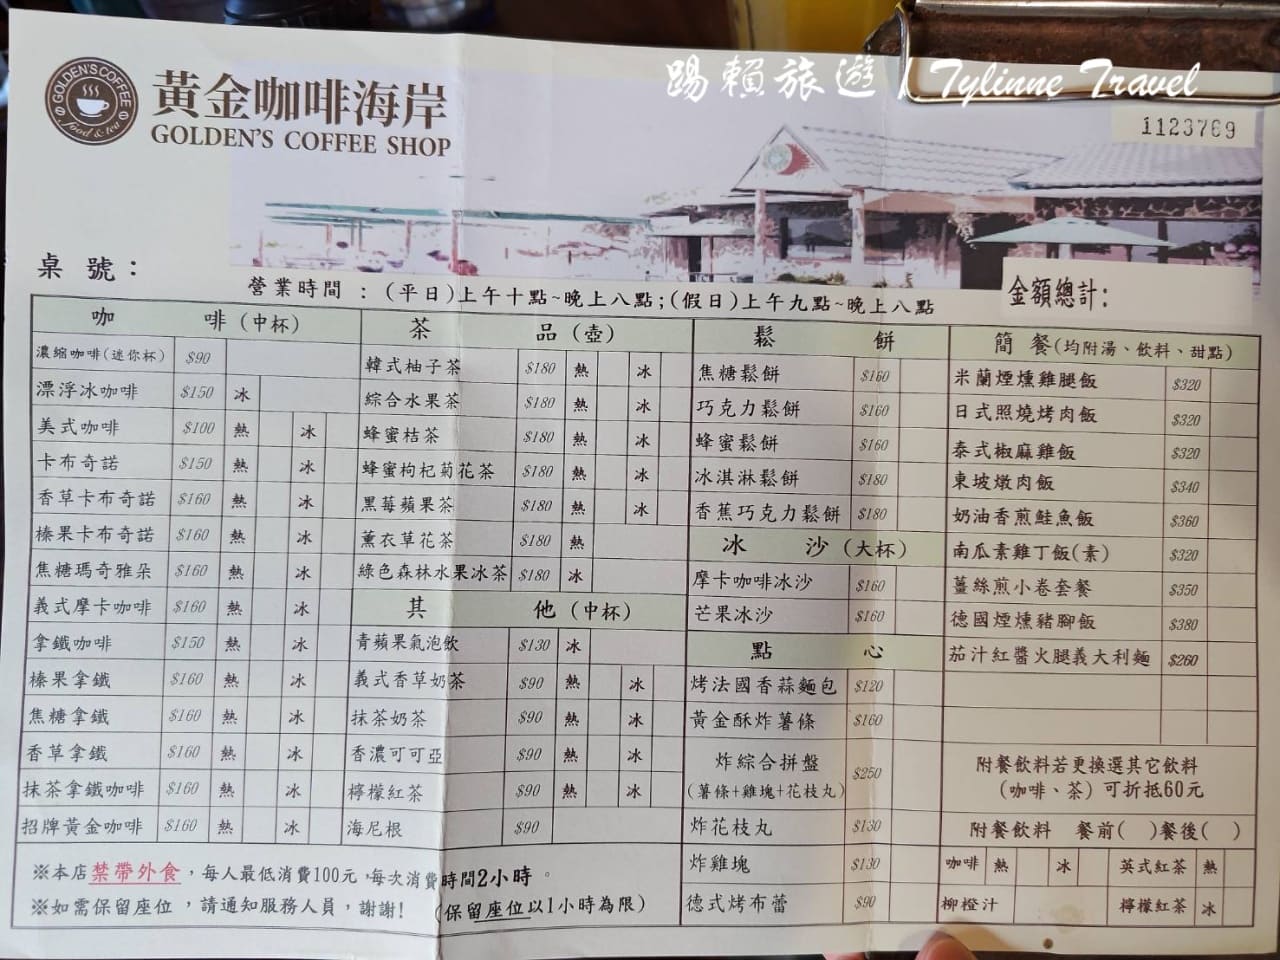 踢賴旅遊 / Tylinne Travel
GOLDEN'S COFFEE
food & tea
黃金咖啡海岸
GOLDEN'S COFFEE SHOP
1123769
桌 號：
營業時間 : (平日)上午十點~晚上八點;(假日)上午九點~晚上八點
金額總計:
咖 啡 (中杯)
濃縮咖啡(迷你杯) $90
漂浮冰咖啡 $150 冰
美式咖啡 $100 熱 冰
卡布奇諾 $150 熱 冰
香草卡布奇諾 $160 熱 冰
榛果卡布奇諾 $160 熱 冰
焦糖瑪奇雅朵 $160 熱 冰
義式摩卡咖啡 $160 熱 冰
拿鐵咖啡 $150 熱 冰
榛果拿鐵 $160 熱 冰
焦糖拿鐵 $160 熱 冰
香草拿鐵 $160 熱 冰
抹茶拿鐵咖啡 $160 熱 冰
招牌黃金咖啡 $160 熱 冰
茶 品 (壺)
韓式柚子茶 $180 熱 冰
綜合水果茶 $180 熱 冰
蜂蜜桔茶 $180 熱 冰
蜂蜜枸杞菊花茶 $180 熱 冰
黑莓蘋果茶 $180 熱 冰
薰衣草花茶 $180 熱
綠色森林水果冰茶 $180 冰
其 他 (中杯)
青蘋果氣泡飲 $130 冰
義式香草奶茶 $90 熱 冰
抹茶奶茶 $90 熱 冰
香濃可可亞 $90 熱 冰
檸檬紅茶 $90 熱 冰
海尼根 $90
鬆 餅
焦糖鬆餅 $160
巧克力鬆餅 $160
蜂蜜鬆餅 $160
冰淇淋鬆餅 $180
香蕉巧克力鬆餅 $180
冰 沙 (大杯)
摩卡咖啡冰沙 $160
芒果冰沙 $160
點 心
烤法國香蒜麵包 $120
黃金酥炸薯條 $160
炸綜合拼盤 $250
(薯條+雞塊+花枝丸)
炸花枝丸 $130
炸雞塊 $130
德式烤布蕾 $90
簡 餐(均附湯、飲料、甜點)
米蘭煙燻雞腿飯 $320
日式照燒烤肉飯 $320
泰式椒麻雞飯 $320
東坡燉肉飯 $340
奶油香煎鮭魚飯 $360
南瓜素雞丁飯(素) $320
薑絲煎小卷套餐 $350
德國煙燻豬腳飯 $380
茄汁紅醬火腿義大利麵 $260
附餐飲料若更換選其它飲料
(咖啡、茶) 可折抵60元
附餐飲料 餐前( )餐後( )
咖啡 熱 冰 英式紅茶 熱
柳橙汁 檸檬紅茶 冰
※本店禁帶外食，每人最低消費100元，每次消費時間2小時。
※如需保留座位，請通知服務人員，謝謝! (保留座位以1小時為限)